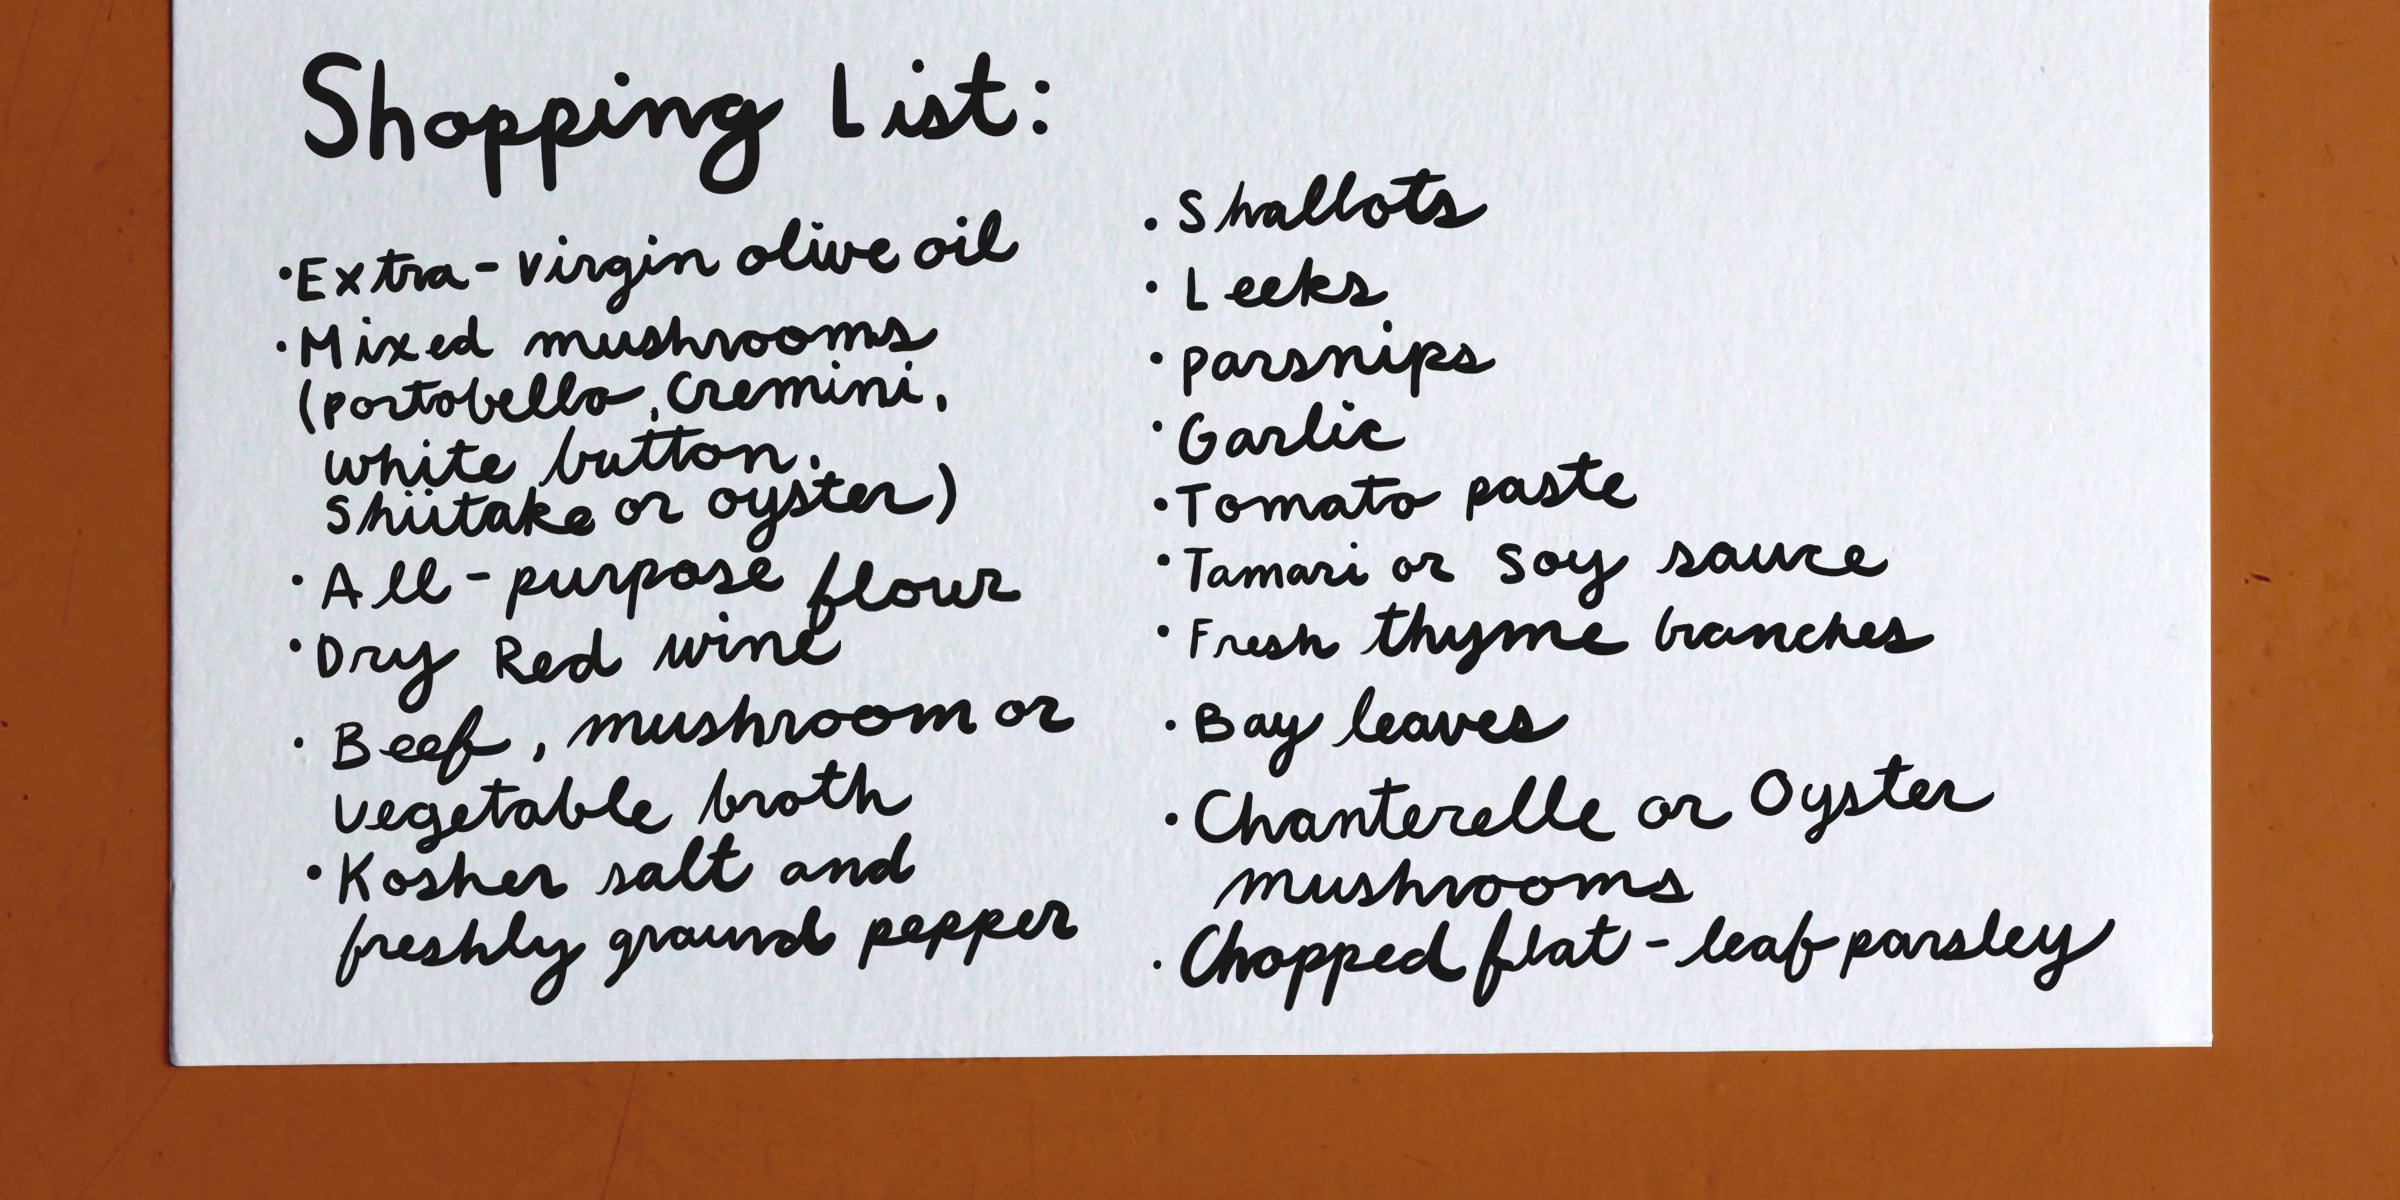 Shopping List:
• Extra-virgin olive oil
• Mixed mushrooms
(portobello, Cremini,
white button,
Shiitake or oyster)
• All-purpose flour
• Dry Red wine
• Beef, mushroom or
vegetable broth
• Kosher salt and
freshly ground pepper
• Shallots
• Leeks
• Parsnips
• Garlic
• Tomato paste
• Tamari or Soy sauce
• Fresh thyme branches
• Bay leaves
• Chanterelle or Oyster
mushrooms
• Chopped flat-leaf parsley